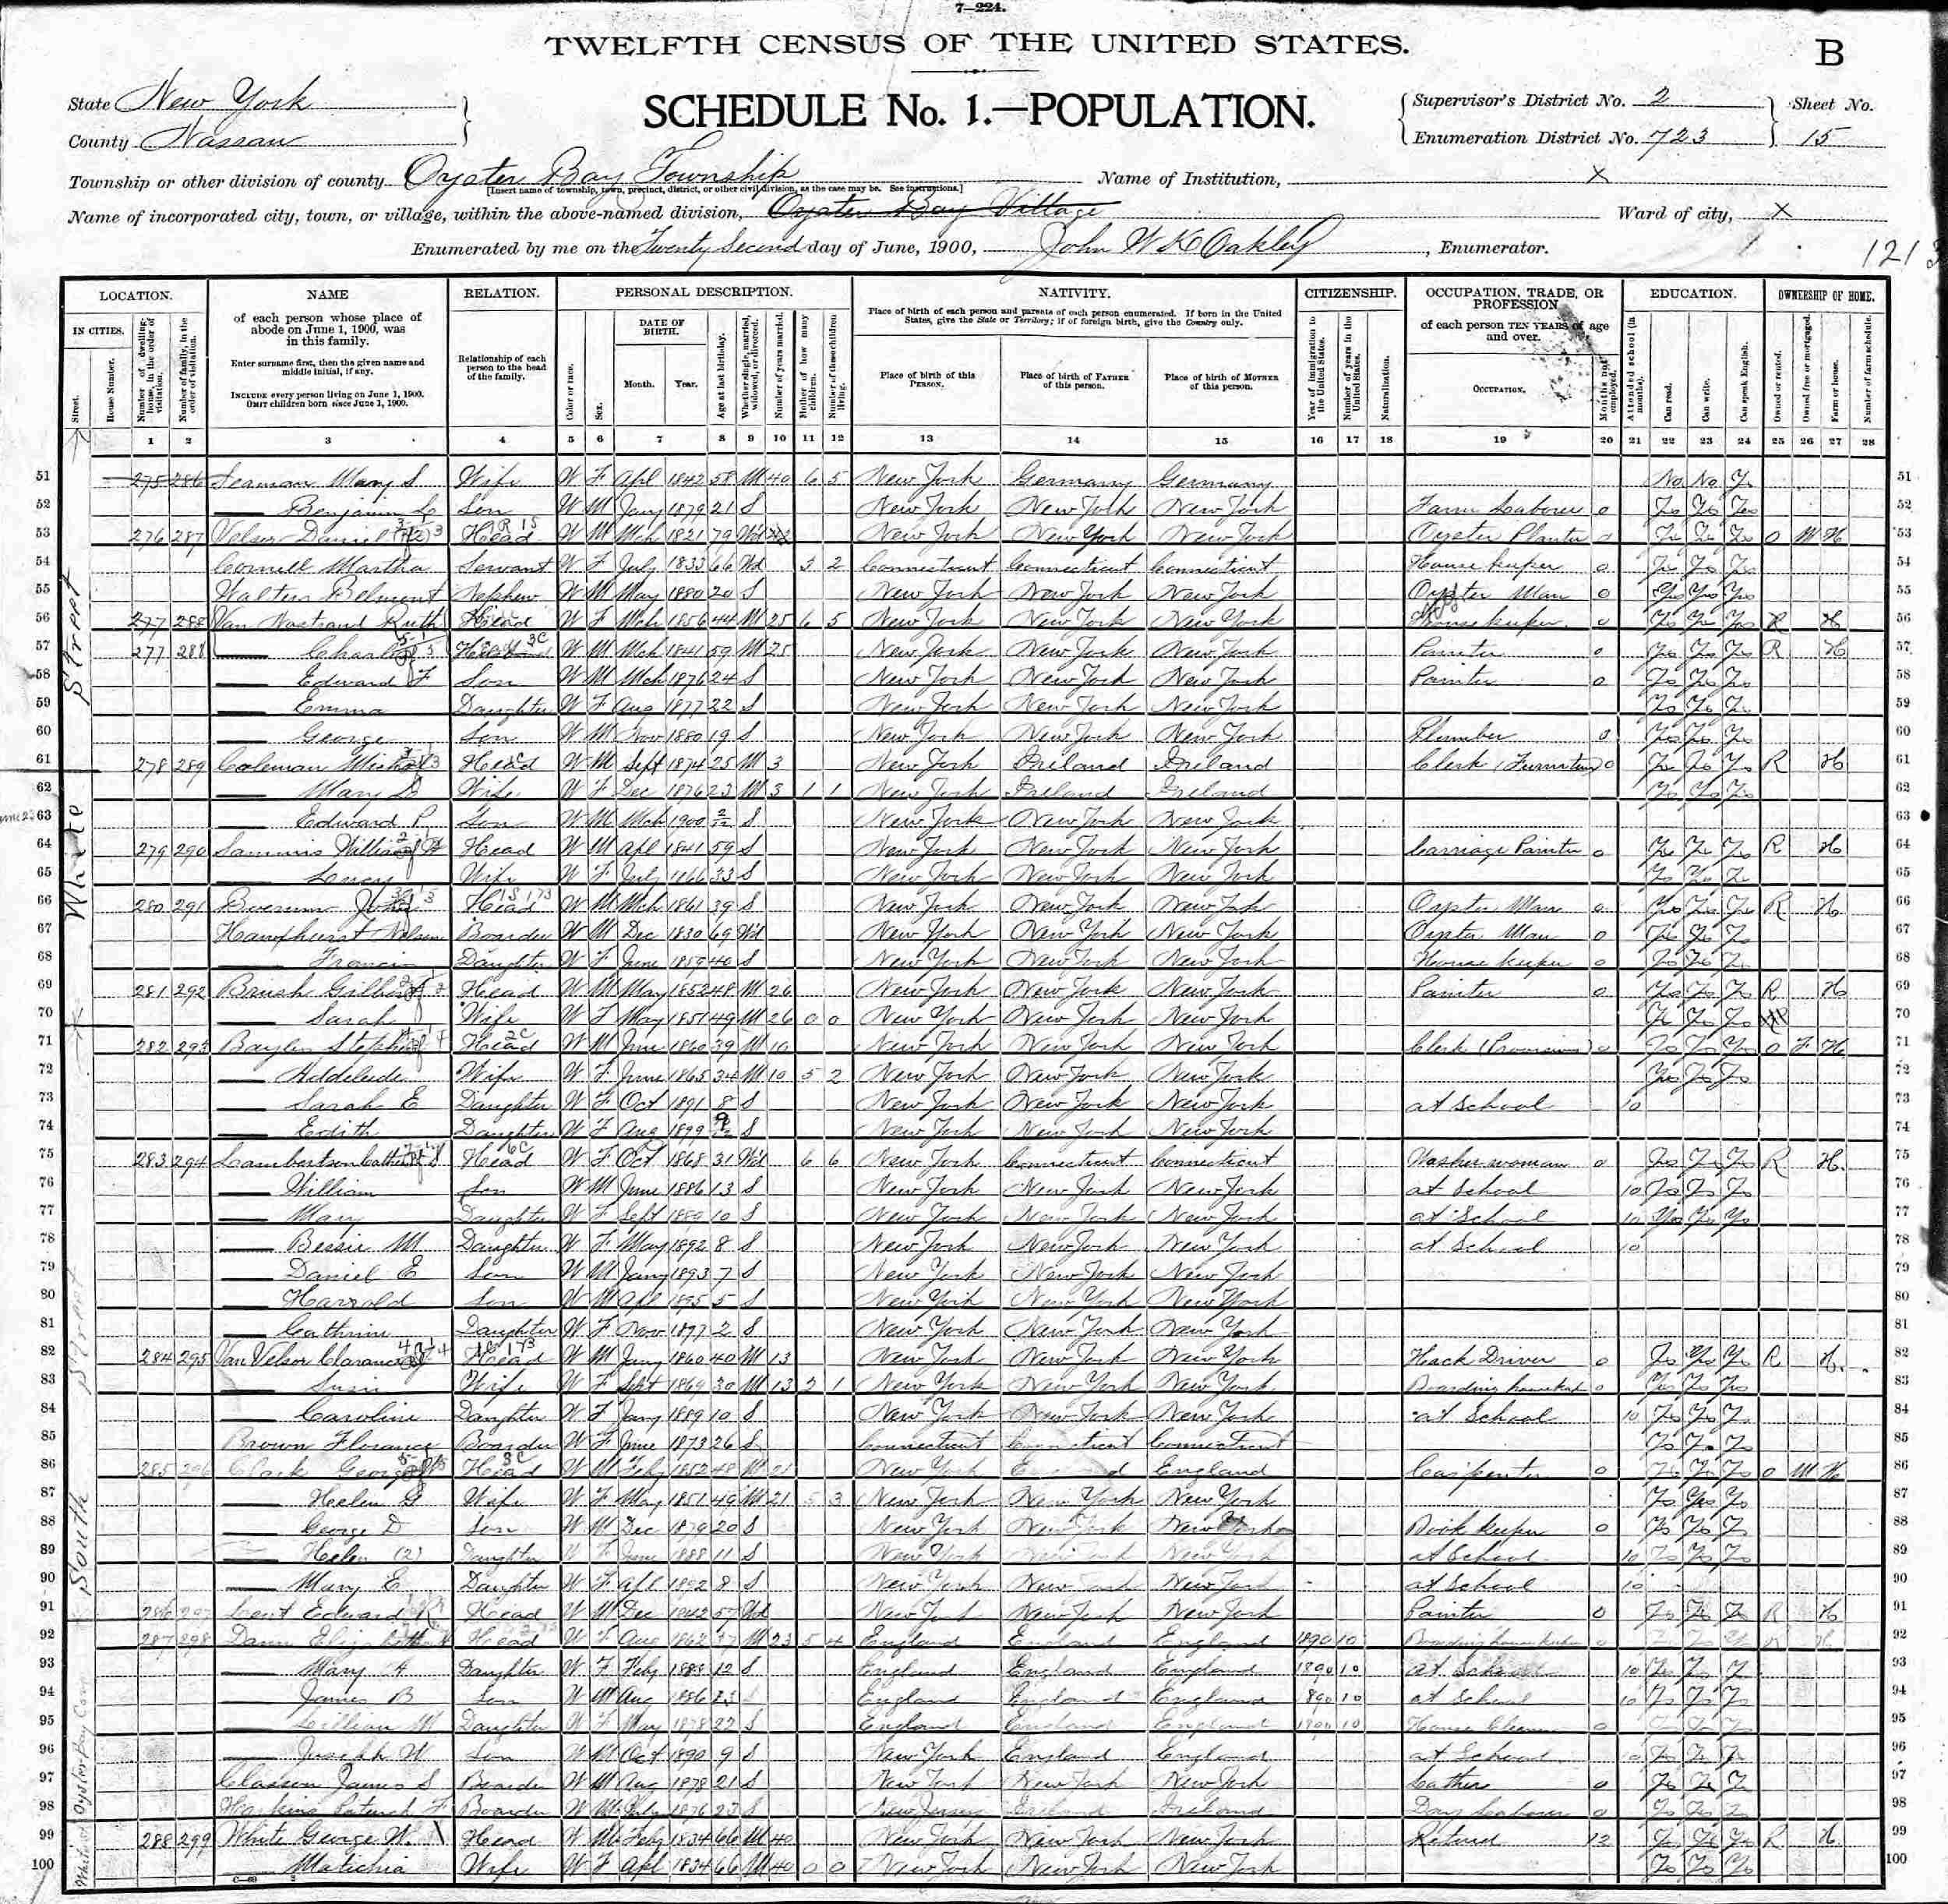 7—224.
TWELFTH CENSUS OF THE UNITED STATES.
B
State New York
SCHEDULE No. 1.—POPULATION.
Supervisor's District No. 2
Sheet No.
County Nassau
Enumeration District No. 723
15
Township or other division of county Oyster Bay Township
[Insert name of township, town, precinct, district, or other civil division, as the case may be. See instructions.]
Name of Institution, X
Name of incorporated city, town, or village, within the above-named division, Oyster Bay Village
Ward of city, X
Enumerated by me on the Twenty Second day of June, 1900, John W K Oakley, Enumerator.
LOCATION. NAME RELATION. PERSONAL DESCRIPTION. NATIVITY. CITIZENSHIP. OCCUPATION, TRADE, OR PROFESSION EDUCATION. OWNERSHIP OF HOME.
IN CITIES.
Street.
House Number.
Number of dwelling-house, in the order of visitation.
Number of family, in the order of visitation.
of each person whose place of abode on June 1, 1900, was in this family.
Enter surname first, then the given name and middle initial, if any.
INCLUDE every person living on June 1, 1900. OMIT children born since June 1, 1900.
Relationship of each person to the head of the family.
Color or race.
Sex.
DATE OF BIRTH.
Month. Year.
Age at last birthday.
Whether single, married, widowed, or divorced.
Number of years married.
Mother of how many children.
Number of these children living.
Place of birth of each person and parents of each person enumerated. If born in the United States, give the State or Territory; if of foreign birth, give the Country only.
Place of birth of this PERSON.
Place of birth of FATHER of this person.
Place of birth of MOTHER of this person.
Year of immigration to the United States.
Number of years in the United States.
Naturalization.
of each person TEN YEARS of age and over.
OCCUPATION.
Months not employed.
Attended school (in months).
Can read.
Can write.
Can speak English.
Owned or rented.
Owned free or mortgaged.
Farm or house.
Number of farm schedule.
1 2 3 4 5 6 7 8 9 10 11 12 13 14 15 16 17 18 19 20 21 22 23 24 25 26 27 28
51 275 286 Mary S Wife W F Apl 1842 58 M 40 6 5 New York Germany Germany No No 51
52 Benjamin L Son W M Jany 1879 21 S New York New York New York Farm Laborer 0 52
53 276 287 Velsor Daniel Head W M Mch 1821 79 Wd New York New York New York Oyster Planter O M H 53
54 Cornell Martha Servant W F July 1833 66 Wd 3 2 Connecticut Connecticut Connecticut House keeper 0 54
55 Walters Belmont Nephew W M May 1880 20 S New York New York New York Oyster Man 0 55
56 277 288 Van Nostrand Ruth W F Mch 1856 44 M 25 6 5 New York New York New York House keeper 0 R H 56
57 277 288 W M Mch 1841 59 M 25 New York New York New York Painter 0 R H 57
58 Edward F Son W M Mch 1876 24 S New York New York New York Painter 0 58
59 Emma Daughter W F Aug 1877 22 S New York New York New York 59
60 George Son W M Nov 1880 19 S New York New York New York Plumber 0 60
61 278 289 Coleman Head W M Sept 1874 25 M 3 New York Ireland Ireland Clerk (Furniture) 0 R H 61
62 Mary Wife W F Dec 1876 23 M 3 1 1 New York Ireland Ireland 62
63 Edward P Son W M Mch 1900 2/12 S New York New York New York 63
64 279 290 Sammis William Head W M Apl 1841 59 S New York New York New York Carriage Painter 0 R H 64
65 Wife W F July 1866 33 S New York New York New York 65
66 280 291 John Head W M Mch 1861 39 S New York New York New York Oyster Man 0 R H 66
67 Nelson Boarder W M Dec 1830 69 Wd New York New York New York Oyster Man 0 67
68 Daughter W F June 1859 40 S New York New York New York House keeper 0 68
69 281 292 Brush Gilbert Head W M May 1852 48 M 26 New York New York New York Painter 0 R H 69
70 Sarah Wife W F May 1851 49 M 26 0 0 New York New York New York 70
71 282 293 Stephen Head W M June 1860 39 M 10 New York New York New York Clerk (Provisions) 0 O F H 71
72 Addeleide Wife W F June 1865 34 M 10 5 2 New York New York New York 72
73 Sarah E Daughter W F Oct 1891 8 S New York New York New York at School 10 73
74 Edith Daughter W F Aug 1899 S New York New York New York 74
75 283 294 Lambertson Head W F Oct 1868 31 Wd 6 6 New York Connecticut Connecticut Washer woman 0 R H 75
76 William Son W M June 1886 13 S New York New York New York at School 10 76
77 Mary Daughter W F Sept 10 S New York New York New York at School 10 77
78 Bessie M Daughter W F May 1892 8 S New York New York New York at School 10 78
79 Daniel E Son W M Jany 1893 7 S New York New York New York 79
80 Harrold Son W M Apl 1895 5 S New York New York New York 80
81 Cathrin Daughter W F Nov 1897 2 S New York New York New York 81
82 284 295 Van Velsor Clarance Head W M Jany 1860 40 M 13 New York New York New York Hack Driver 0 R H 82
83 Susie Wife W F Sept 1869 30 M 13 2 1 New York New York New York 0 83
84 Caroline Daughter W F Jany 1889 10 S New York New York New York at School 10 84
85 Brown Florance Boarder W F June 1873 26 S Connecticut Connecticut Connecticut 85
86 285 296 Clark George Head W M Feby 1852 48 M 21 New York England England Carpenter 0 O M H 86
87 Helen G Wife W F May 1851 49 M 21 5 3 New York New York New York 87
88 George D Son W M Dec 1879 20 S New York New York New York Book keeper 0 88
89 Helen (2) Daughter W F June 1888 11 S New York New York New York at School 10 89
90 Mary E Daughter W F Apl 1892 8 S New York New York New York at School 10 90
91 286 297 Edward Head W M Dec 1842 57 Wd New York New York New York Painter 0 R H 91
92 287 298 Elizabeth Head W F Aug 1862 37 M 23 5 4 England England England 1890 10 92
93 Mary A Daughter W F Feby 1888 12 S England England England 1890 10 at School 10 93
94 James B Son W M Aug 1886 13 S England England England 1890 10 at School 10 94
95 Lillian M Daughter W F May 1878 22 S England England England 1890 10 House Cleaner 0 95
96 Joseph W Son W M Oct 1890 9 S New York England England at School 10 96
97 James S Boarder W M Aug 1878 21 S New York New York New York 0 97
98 Patrick F Boarder W M July 1876 23 S New Jersey Ireland Ireland Day Laborer 0 98
99 288 299 White George W. Head W M Feby 1834 66 M 40 New York New York New York Retired 12 R H 99
100 Matichia Wife W F Apl 1834 66 M 40 0 0 New York New York New York 100
White Street
South Street